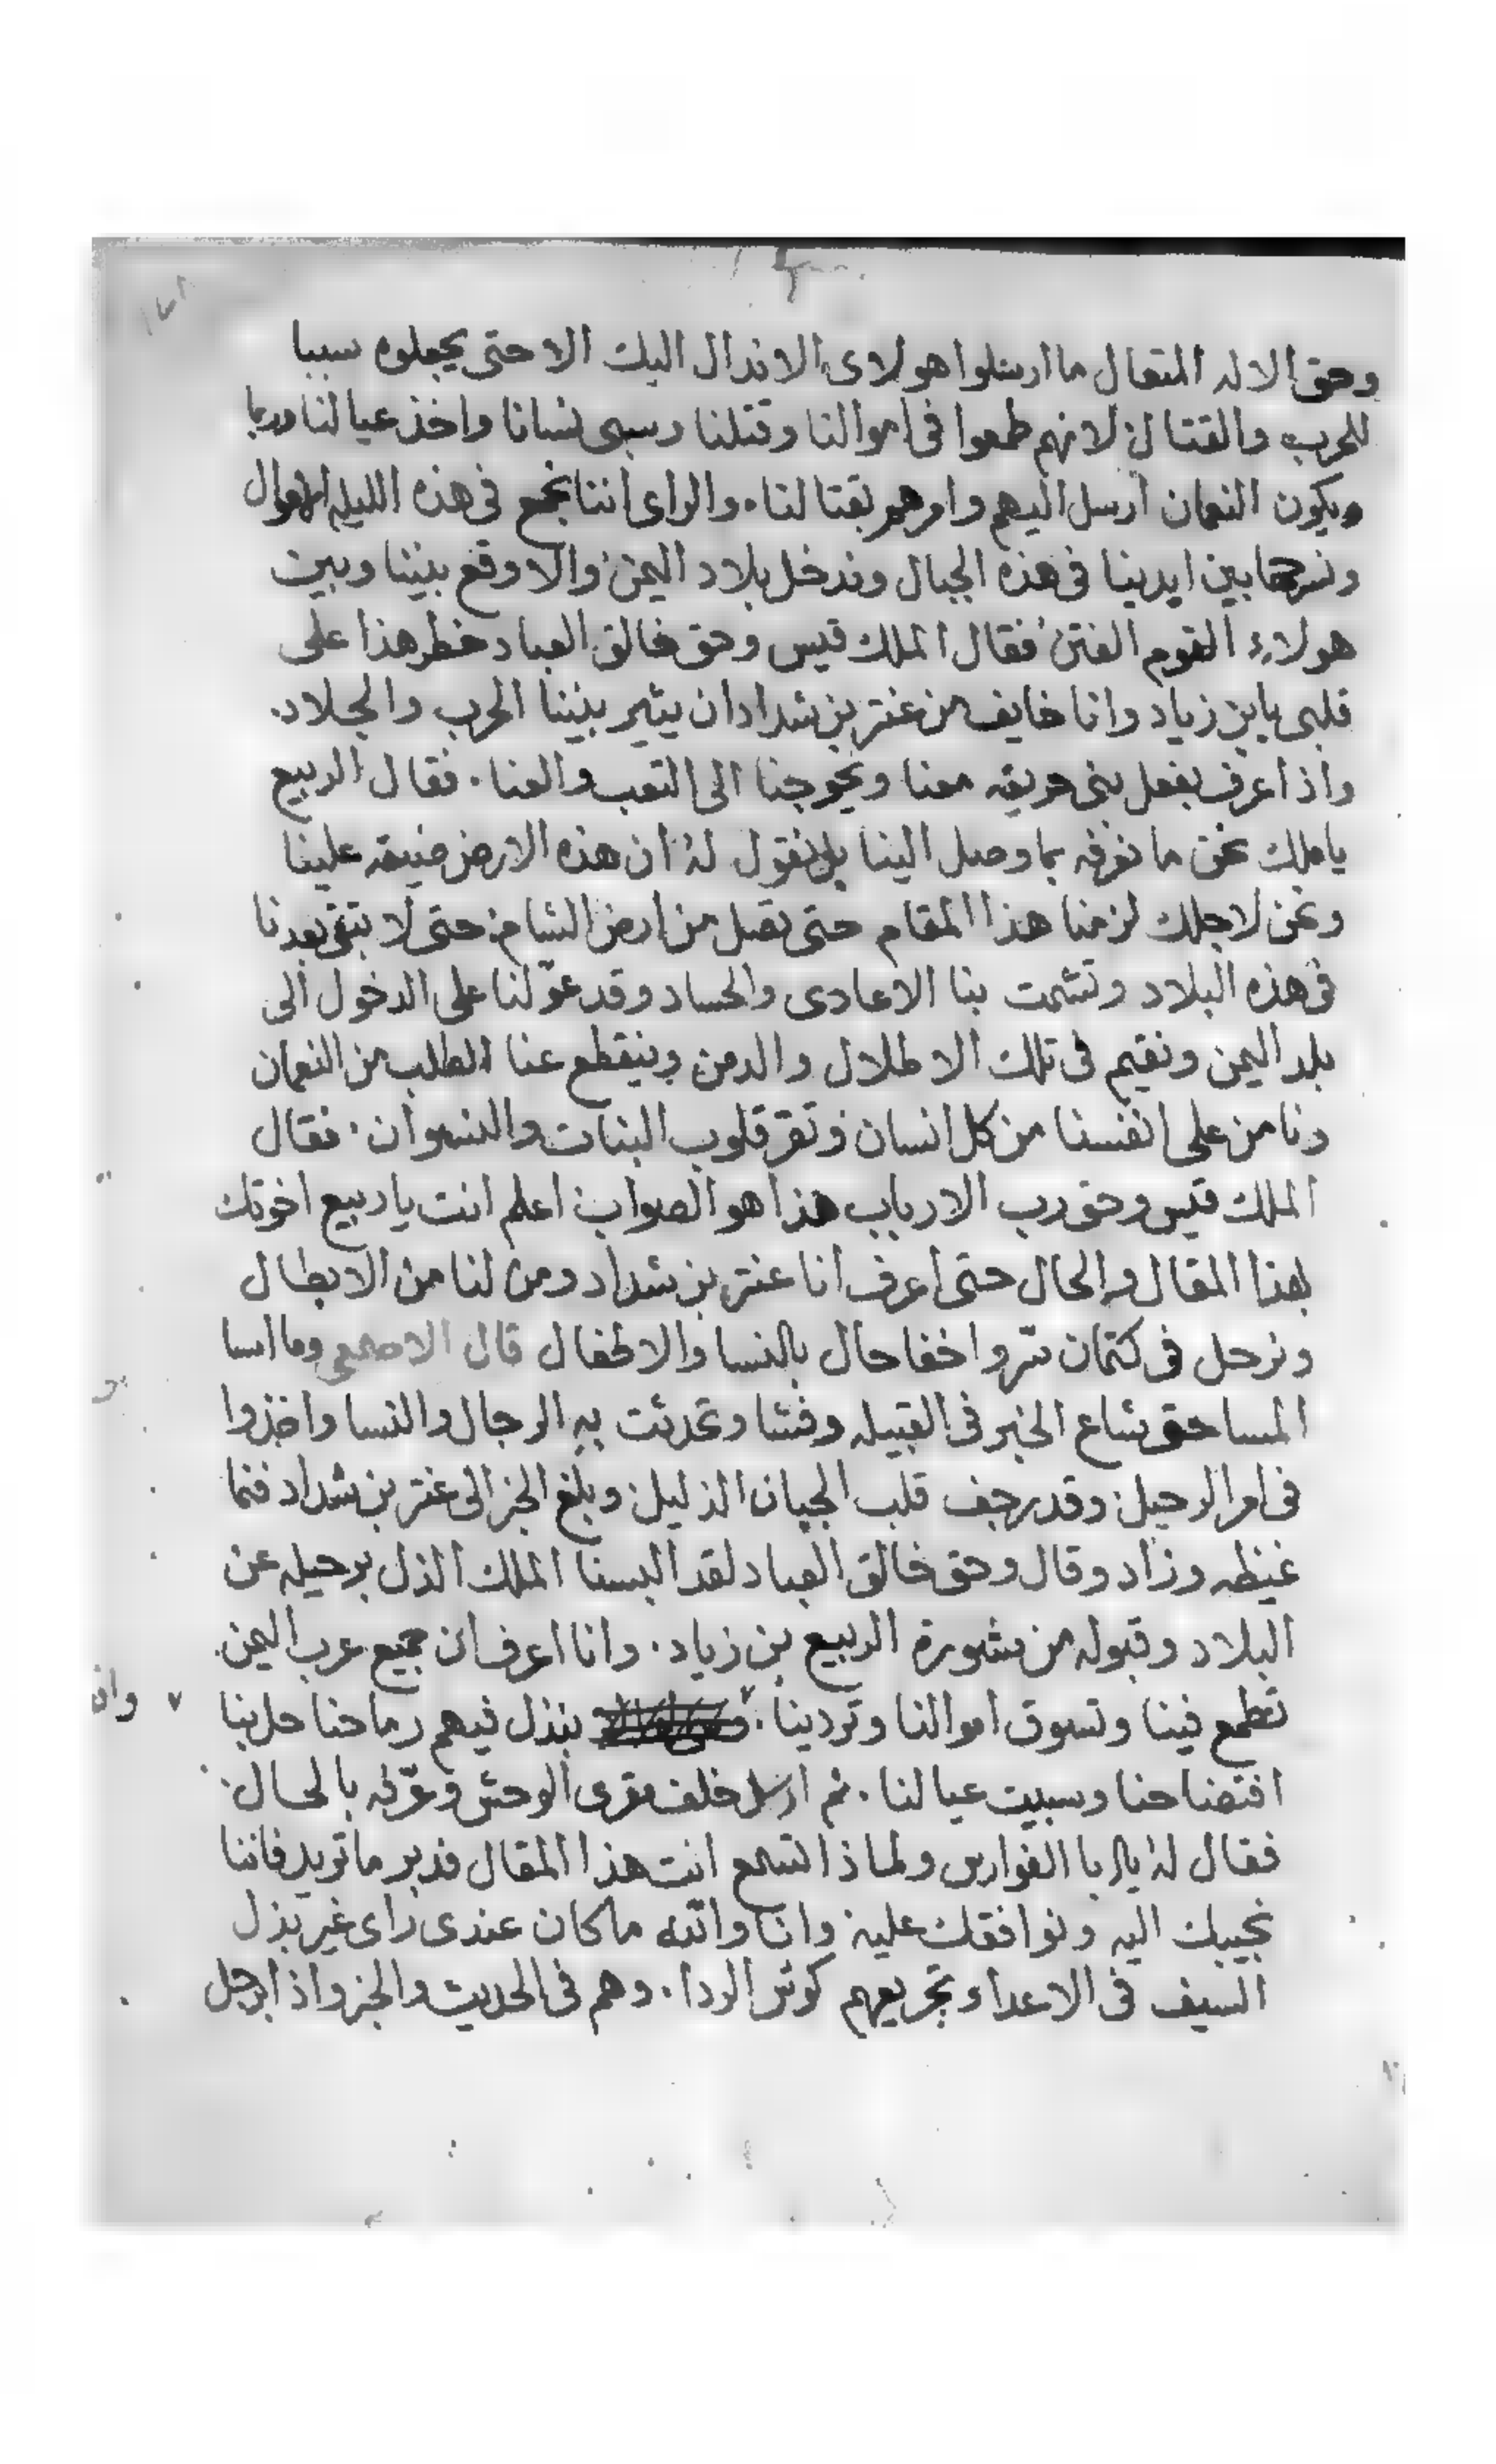 وحق الاله المتعال ما ارسلوا هولاى الاندال اليك الا حتى يجعلوه سببا
للحرب والقتال لانهم طمعوا فى اموالنا وقتلنا وسبى نسانا واخذ عيالنا وربما
ويكون النعمان ارسل اليهم وامرهم بقتالنا. والراى اننا نجمع فى هذه الليله الاموال
ونسرحها بين ايدينا فى هذه الجبال وندخل بلاد اليمن والا وقع بيننا وبين
هولاء القوم الفتن فقال الملك قيس وحق خالق العباد خطر هذا على
قلبى يابن زياد وانا خايف من عنتر بن شداد ان يثير بيننا الحرب والجلاد.
واذا عرف بفعل بنى معنا ويحوجنا الى التعب والعنا. فقال الربيع
ياملك نحن ما نعرفه بما وصل الينا بل نقول له ان هذه الارض ضيقه علينا
ونحن لاجلك لزمنا هذا المقام حتى تصل من ارض الشام حتى لا تبقى بعدنا
فى هذه البلاد وتشمت بنا الاعادى والحساد وقد عوّلنا على الدخول الى
بلد اليمن ونقيم فى تلك الاطلال والدمن وينقطع عنا الطلب من النعمان
ونامن على انفسنا من كل انسان وتقر قلوب البنات والنسوان. فقال
الملك قيس وحق رب الارباب هذا هو الصواب اعلم انت ياربيع اخوتك
بهذا المقال والحال حتى اعرف انا عنتر بن شداد ومن لنا من الابطال
ونرحل فى كتمان سّر واخفا حال بالنسا والاطفال قال الاصمعى وما امسا
المسا حتى شاع الخبر فى القبيله وفشا وتحدثت به الرجال والنسا واخذوا
فى امر الرحيل وقد رجف قلب الجبان الذليل وبلغ الخبر الى عنتر بن شداد فنما
غيظه وزاد وقال وحق خالق العباد لقد البسنا الملك الذل برحيله عن
البلاد وقبوله من مشورة الربيع بن زياد. وانا اعرف ان جميع عرب اليمن
تطمع فينا وتسوق اموالنا وتردينا. بنذل فيهم رماحنا حل بنا
وان
افتضاحنا وسبيت عيالنا. ثم ارسل خلف مقرى الوحش وعرّفه بالحال
فقال له يابا الفوارس ولماذا تسمع انت هذا المقال فدبر ما تريد فاننا
نجيبك اليه ونوافقك عليه وانا والله ما كان عندى راى غير بذل
السيف فى الاعداء وتجريعهم كوس الردا. وهم فى الحديث والخبر واذا برجل